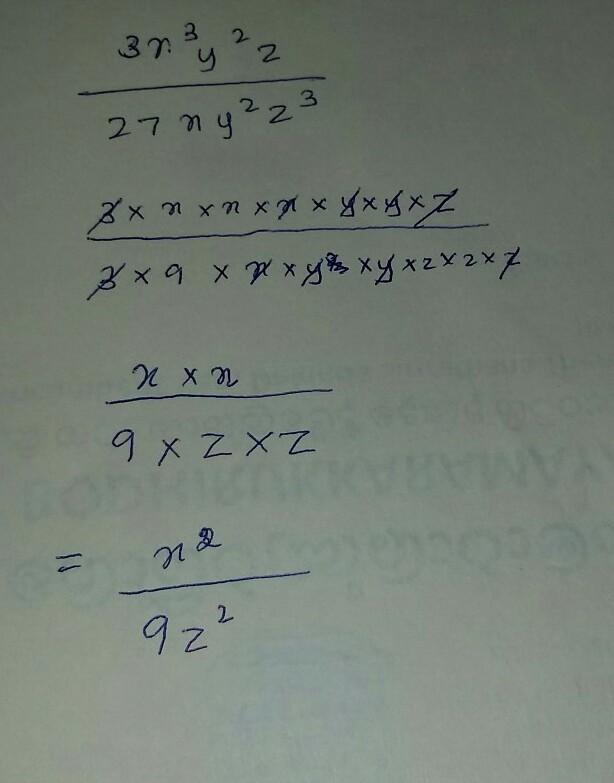 3x³y²z
27xy²z³
3 × x × x × x × y × y × z
3 × 9 × x × y × y × z × z × z
x × x
9 × z × z
= x²
9z²